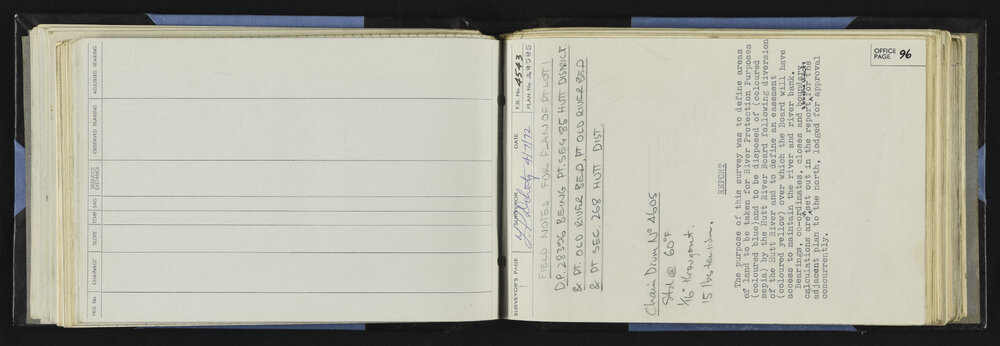 PEG No.
CHAINAGE
SLOPE
TEMP
SAG
REDUCED DISTANCE
OBSERVED BEARING
ADJUSTED BEARING
SURVEYOR'S PAGE
1
SURVEYOR
DATE
4/7/72
F.B. No. 4543
PLAN No. 28585
OFFICE PAGE 96
FIELD NOTES FOR PLAN OF PT LOT 1
D.P. 28996 BEING PT. SEC 85 HUTT DISTRICT
& PT. OLD RIVER BED, PT OLD RIVER BED
& PT SEC. 268 HUTT DIST.
Chain Drum No 4605
Std @ 60°F.
1/16" througout.
15 lbs tension.
REPORT
The purpose of this survey was to define areas
of land to be taken for River Protection Purposes
(coloured blue)and to be disposed of (coloured
sepia) by the Hutt River Board following diversion
of the Hutt River and to define an easement
(coloured yellow) over which the Board will have
access to maintain the river and river bank.
Bearings, co-ordinates, closes and boundary
calculations are set out in the report for the
adjacent plan to the north, lodged for approval
concurrently.